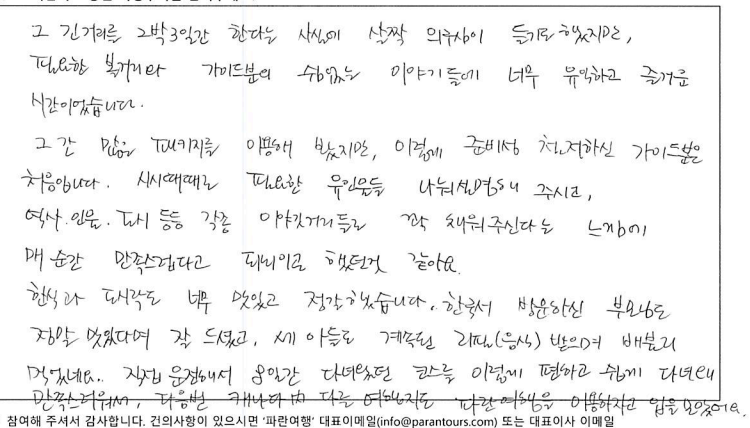 그 긴거리를 2박3일간 한다는 사실에 살짝 의구심이 들기도 했지만,
필요한 볼거리와 가이드분의 쉼없는 이야기들에 너무 유익하고 즐거운
시간이었습니다.
그간 많은 패키지를 이용해 봤지만, 이렇게 준비성 철저하신 가이드분은
처음입니다. 시시때때로 필요한 유인물들 나눠 설명해 주시고,
역사.인물.도시 등등 각종 이야깃거리들로 꽉 채워주신다는 느낌에
매 순간 만족스럽다고 되뇌이곤 했던것 같아요.
한식과 도시락도 너무 맛있고 정갈했습니다. 한국서 방문하신 부모님도
정말 맛있다며 잘 드셨고, 세 아들도 계속된 리필(음식) 받으며 배불리
먹었네요.. 직접 운전해서 8일간 다녀왔던 코스를 이렇게 편하고 쉽게 다녀와
만족스러워서, 다음번 캐나다 및 다른 여행지도 파란여행을 이용하자고 입을 모았어요.
참여해 주셔서 감사합니다. 건의사항이 있으시면 '파란여행' 대표이메일(info@parantours.com) 또는 대표이사 이메일